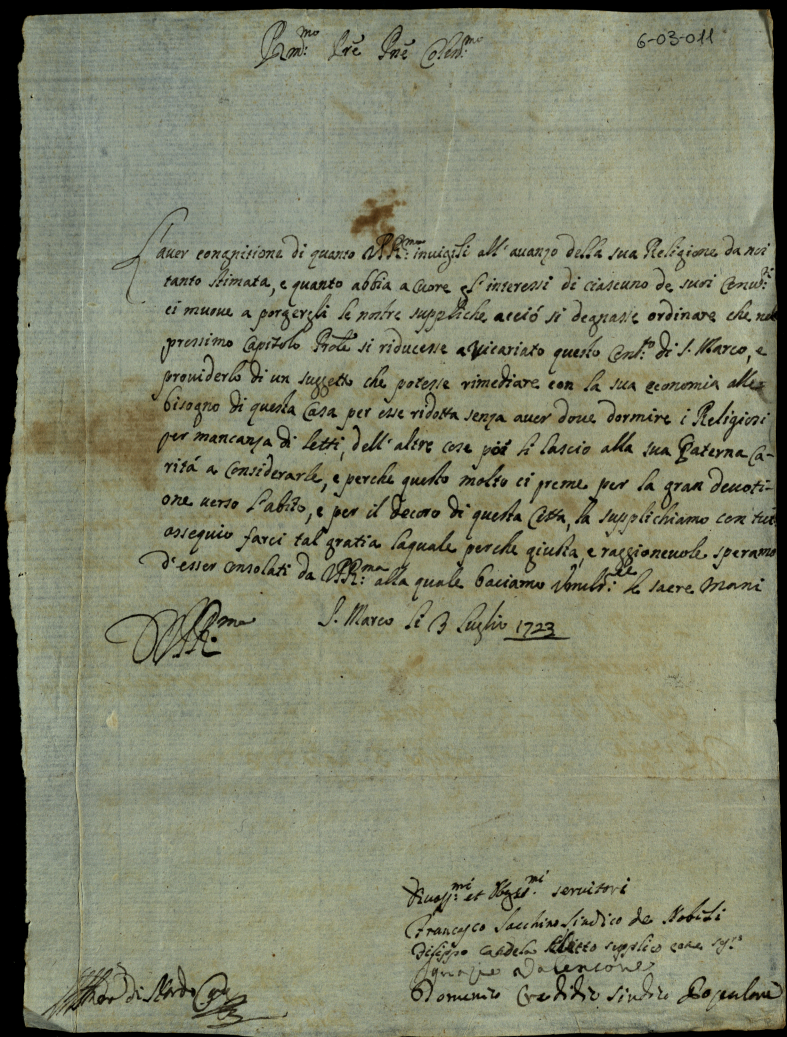 6-03-011
R.mo Pre Pne Colen.mo
L'aver cognitione di quanto V.P.R.ma invigili all'avanzo della sua Religione da noi
tanto stimata, e quanto abbia a cuore gl'interessi di ciascuno de suoi Conv.ti
ci muove a porgergli le nostre suppliche acciò si degnasse ordinare che nel
prossimo Capitolo Prole si riducesse a Vicariato questo Conv.to di S. Marco, e
providerlo di un suggetto che potesse rimediare con la sua economia alle
bisogno di questa Casa per esse ridotta senza aver dove dormire i Religiosi
per mancanza di letti, dell'altre cose poi si lascio alla sua Paterna Ca-
rità a considerarle, e perche questo molto ci preme per la gran devoti-
one verso l'abito, e per il decoro di questa Città, la supplichiamo con
ossequio farci tal gratia laquale perche giusta, e raggionevole speramo
d'esser consolati da V.P.R.ma alla quale baciamo le sacre mani
S. Marco li 3 Luglio 1723
V.P.R.ma
Divoss.mi et Obgss.mi servitori
Francesco Sacchino Sindico de Nobili
Candela Eletto supplico come s.a
Domenico Sindico Popolare
di Nardo